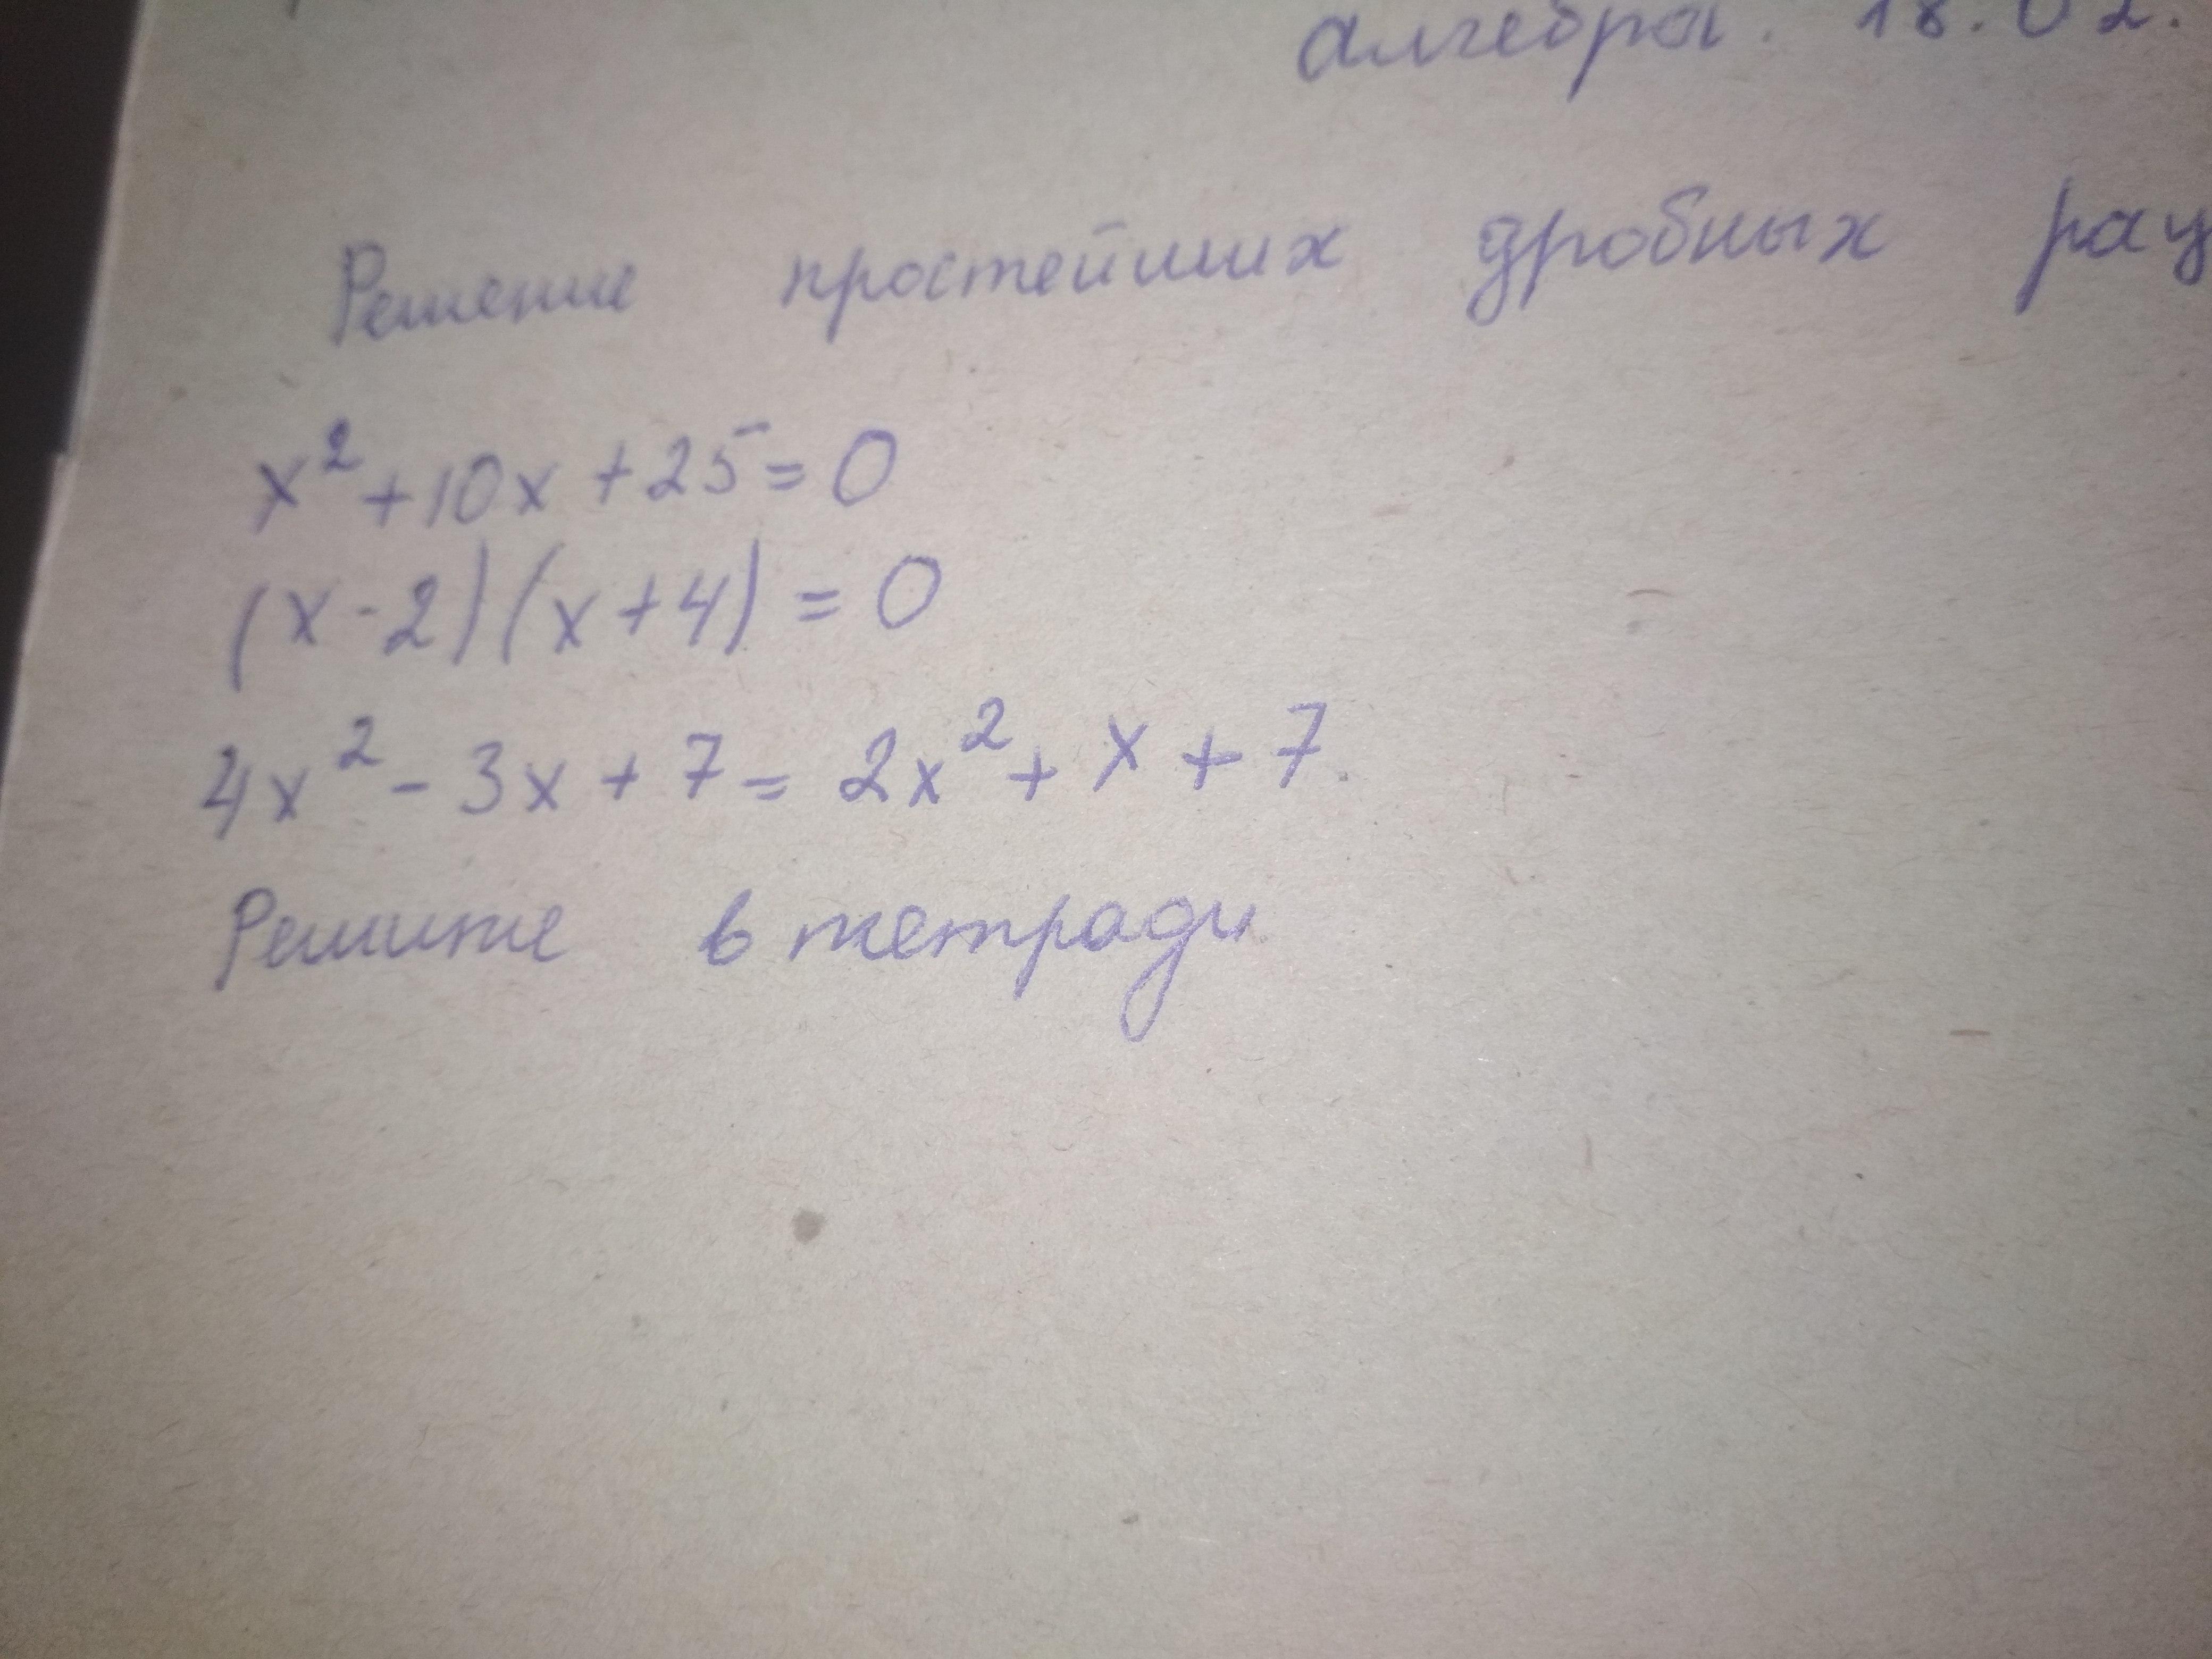 алгебры. 18.02.
Решение простейших дробных рац
x² + 10x + 25 = 0
(x - 2)(x + 4) = 0
4x² - 3x + 7 = 2x² + x + 7.
Решите в тетради